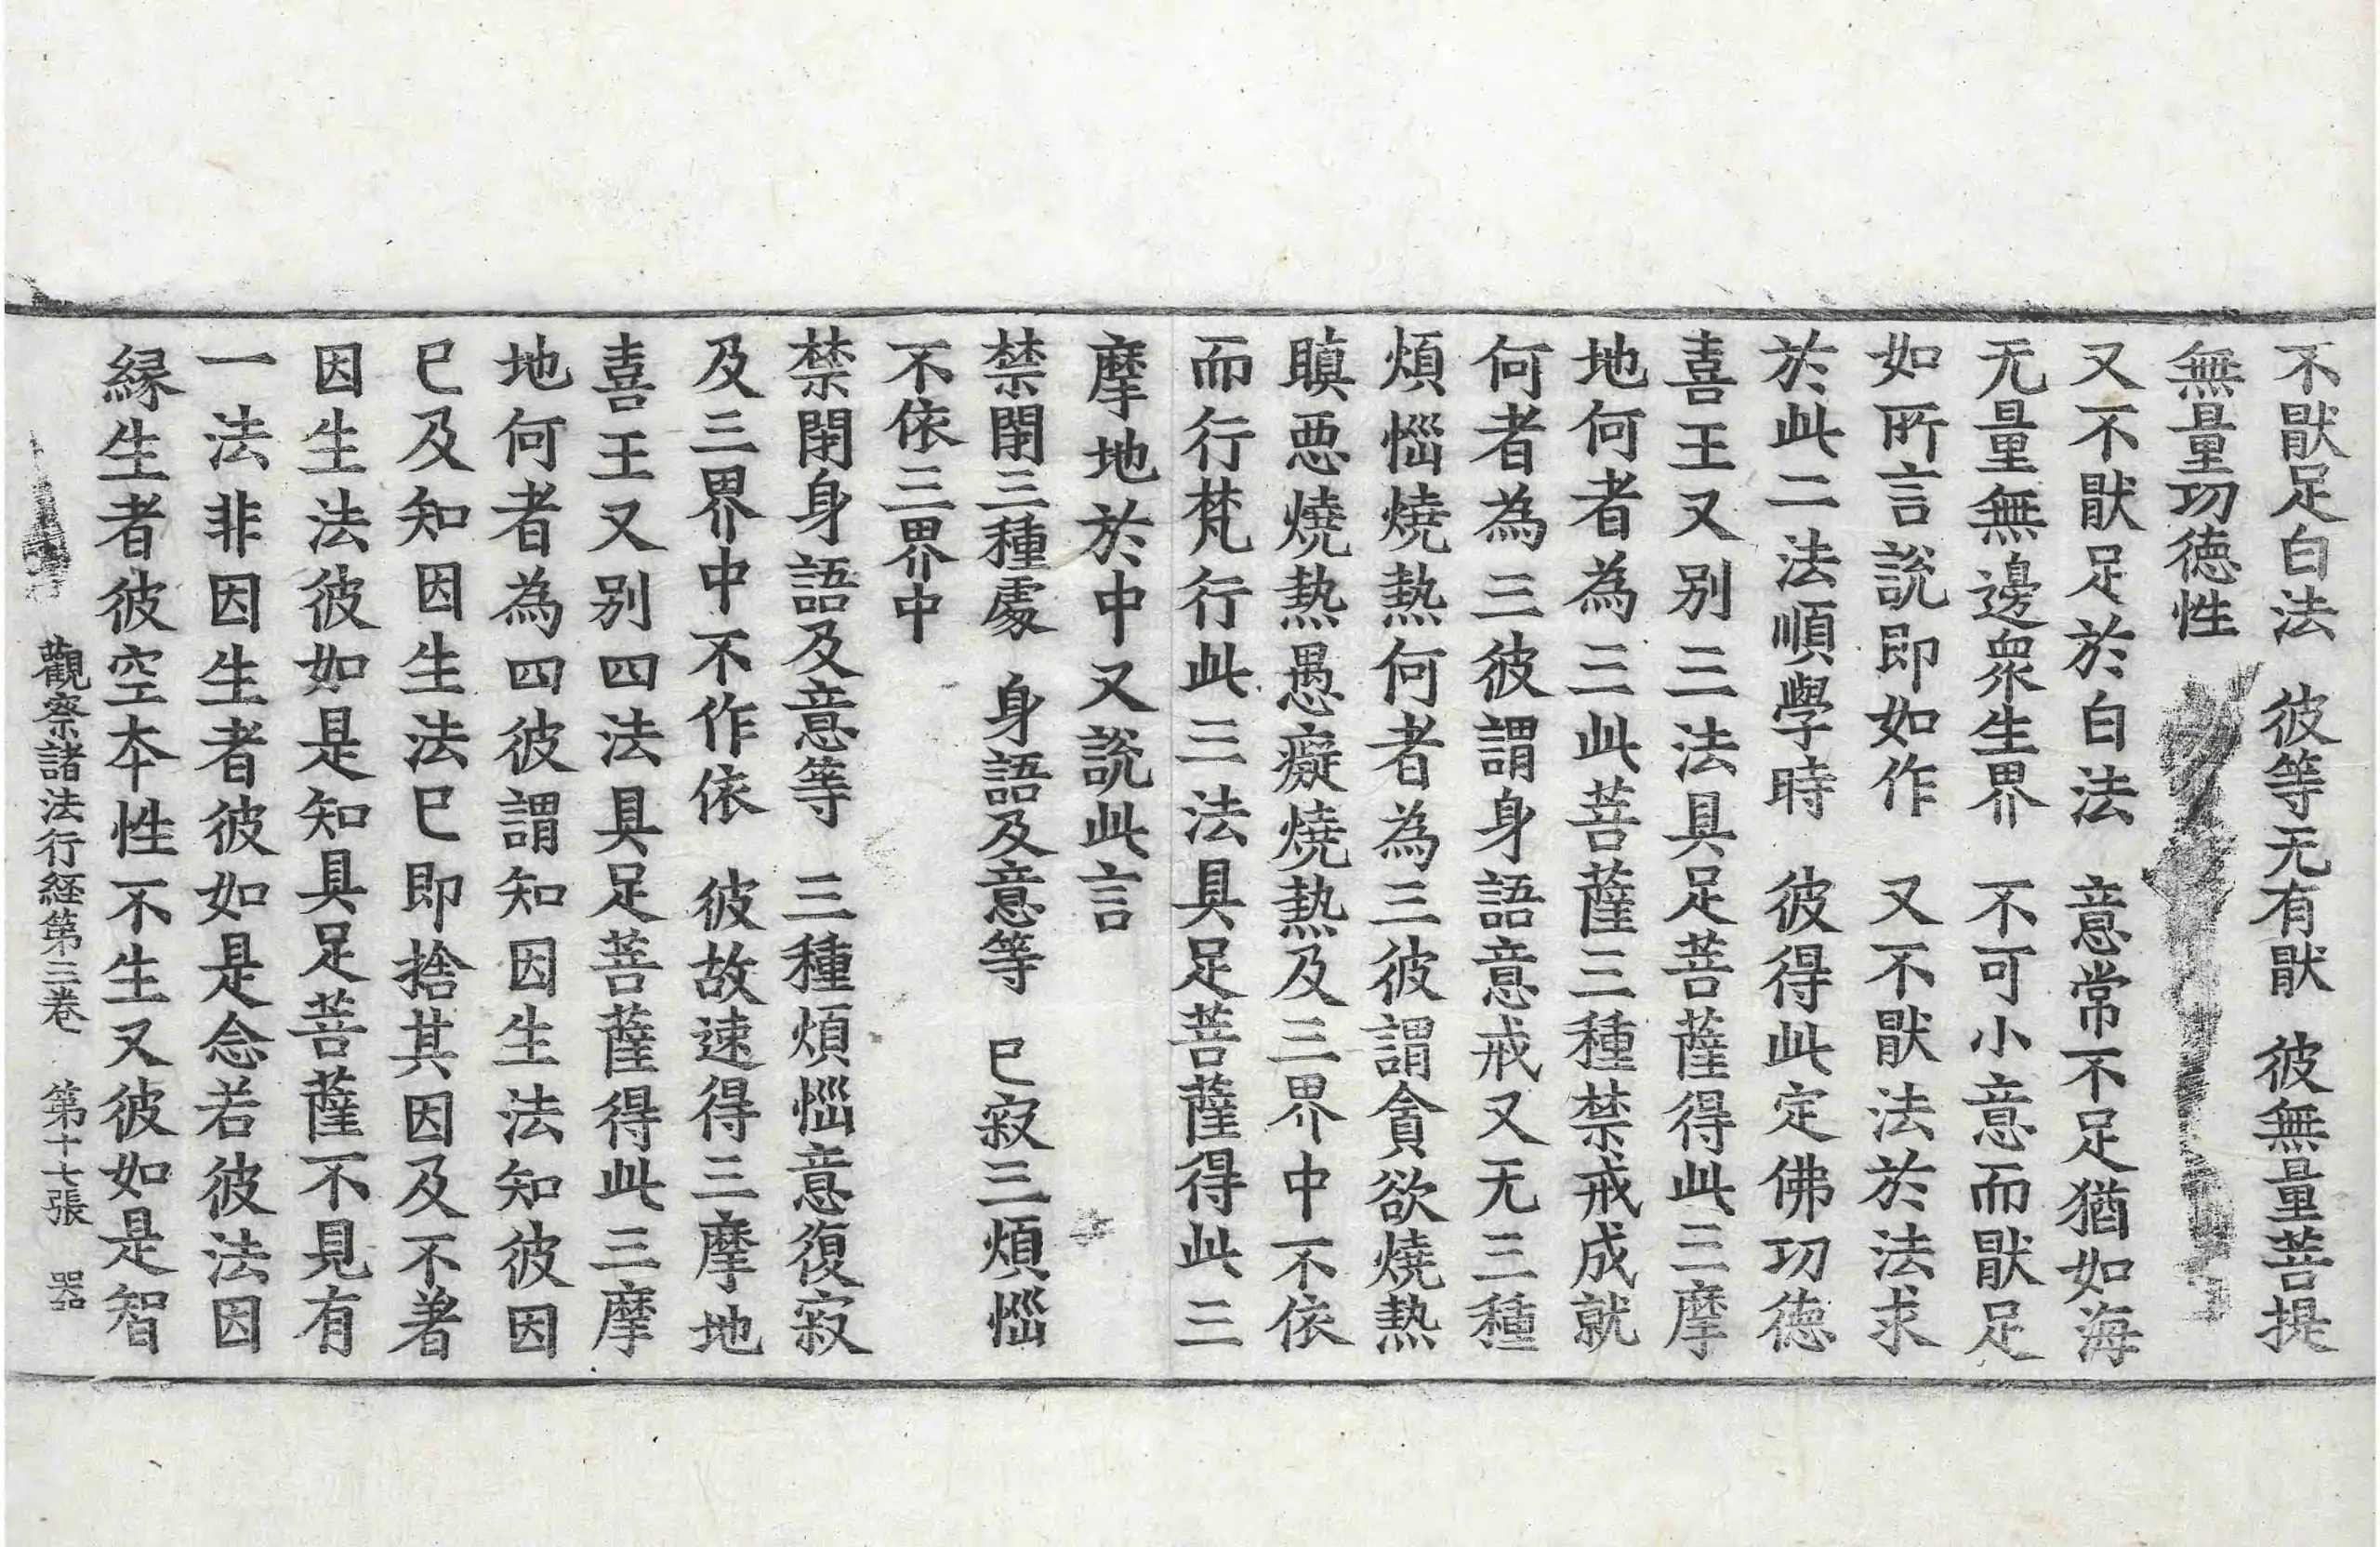 不猒足白法　彼等无有猒　彼無量菩提
無量功德性
又不猒足於白法　意常不足猶如海
无量無邊衆生界　不可小意而猒足
如所言說即如作　又不猒法於法求
於此二法順學時　彼得此定佛功德
喜王又别三法具足菩薩得此三摩
地何者為三此菩薩三種禁戒成就
何者為三彼謂身語意戒又无三種
煩惱燒熱何者為三彼謂貪欲燒熱
瞋惡燒熱愚癡燒熱及三界中不依
而行梵行此三法具足菩薩得此三
摩地於中又說此言
禁閇三種處　身語及意等　已寂三煩惱
不依三界中
禁閇身語及意等　三種煩惱意復寂
及三界中不作依　彼故速得三摩地
喜王又别四法具足菩薩得此三摩
地何者為四彼謂知因生法知彼因
已及知因生法已即捨其因及不著
因生法彼如是知具足菩薩不見有
一法非因生者彼如是念若彼法因
縁生者彼空本性不生又彼如是智
觀察諸法行経第三卷　第十七張　器